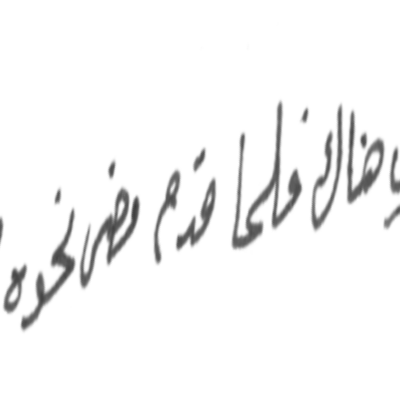 هناك فلما قدم مضى نحوه